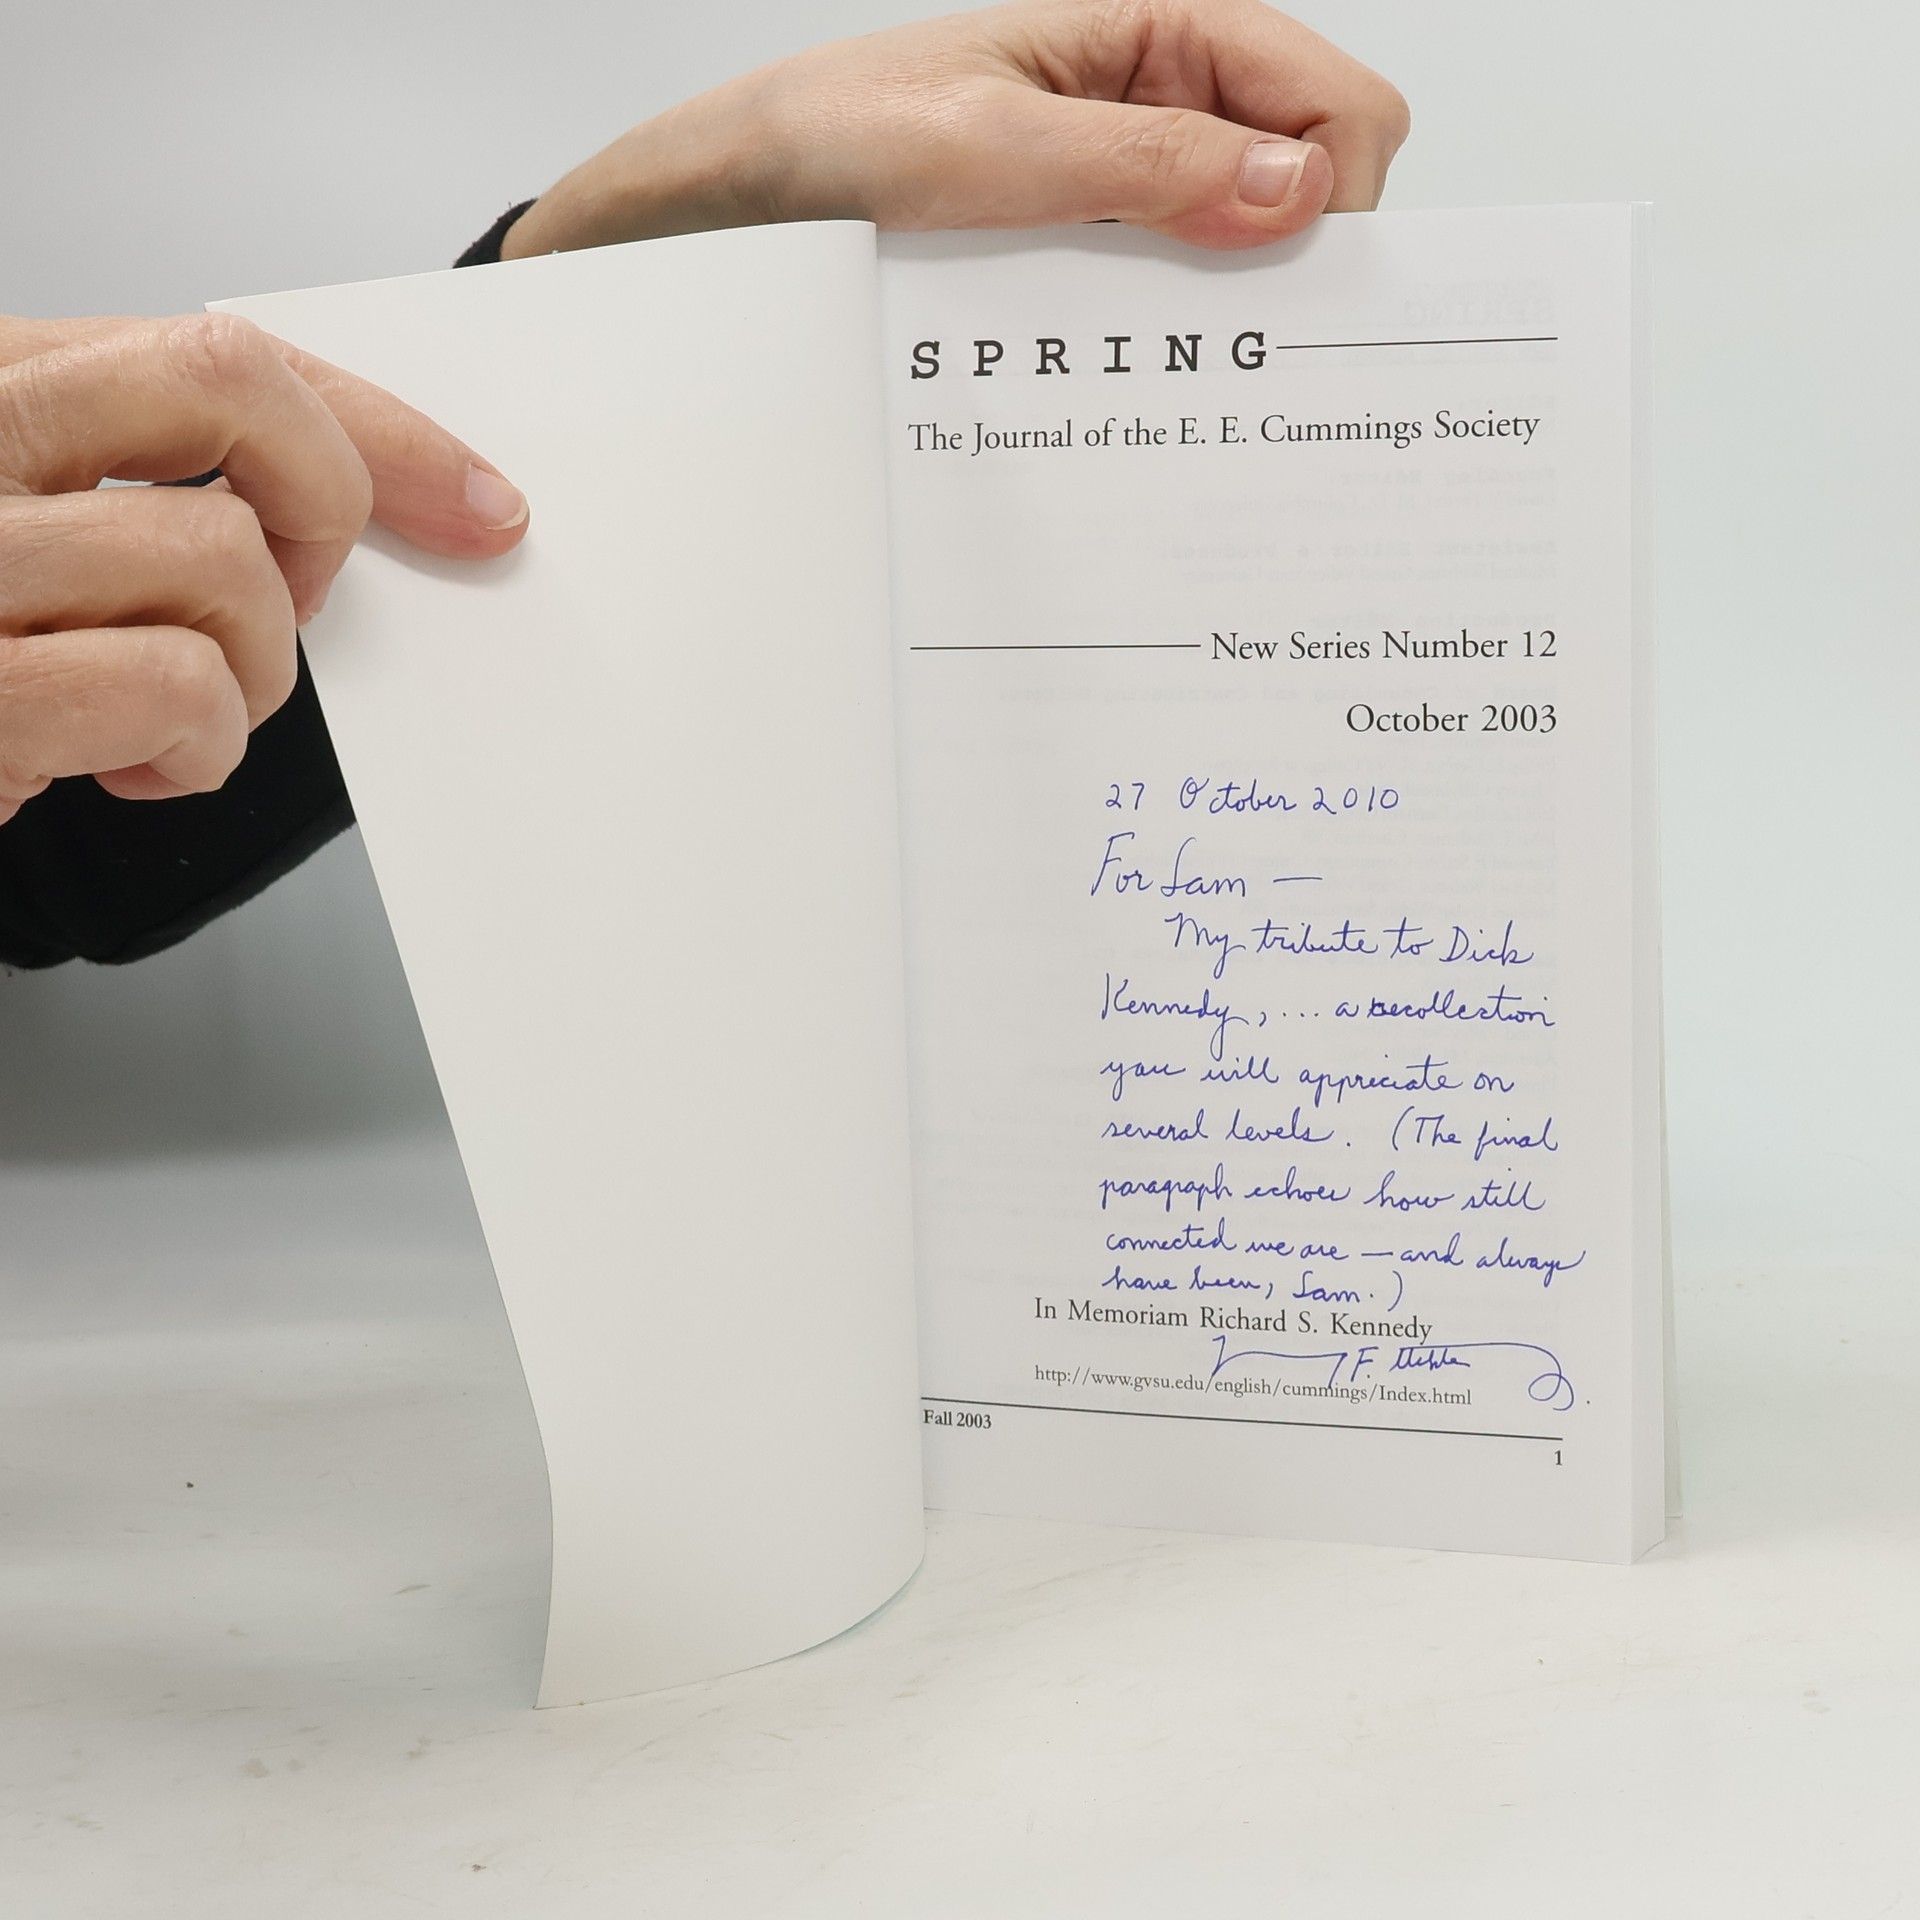 SPRING
The Journal of the E. E. Cummings Society
New Series Number 12
October 2003
27 October 2010
For Sam —
My tribute to Dick
Kennedy, ... a recollection
you will appreciate on
several levels. (The final
paragraph echoes how still
connected we are — and always
have been, Sam.)
In Memoriam Richard S. Kennedy
F.
http://www.gvsu.edu/english/cummings/Index.html
Fall 2003
1